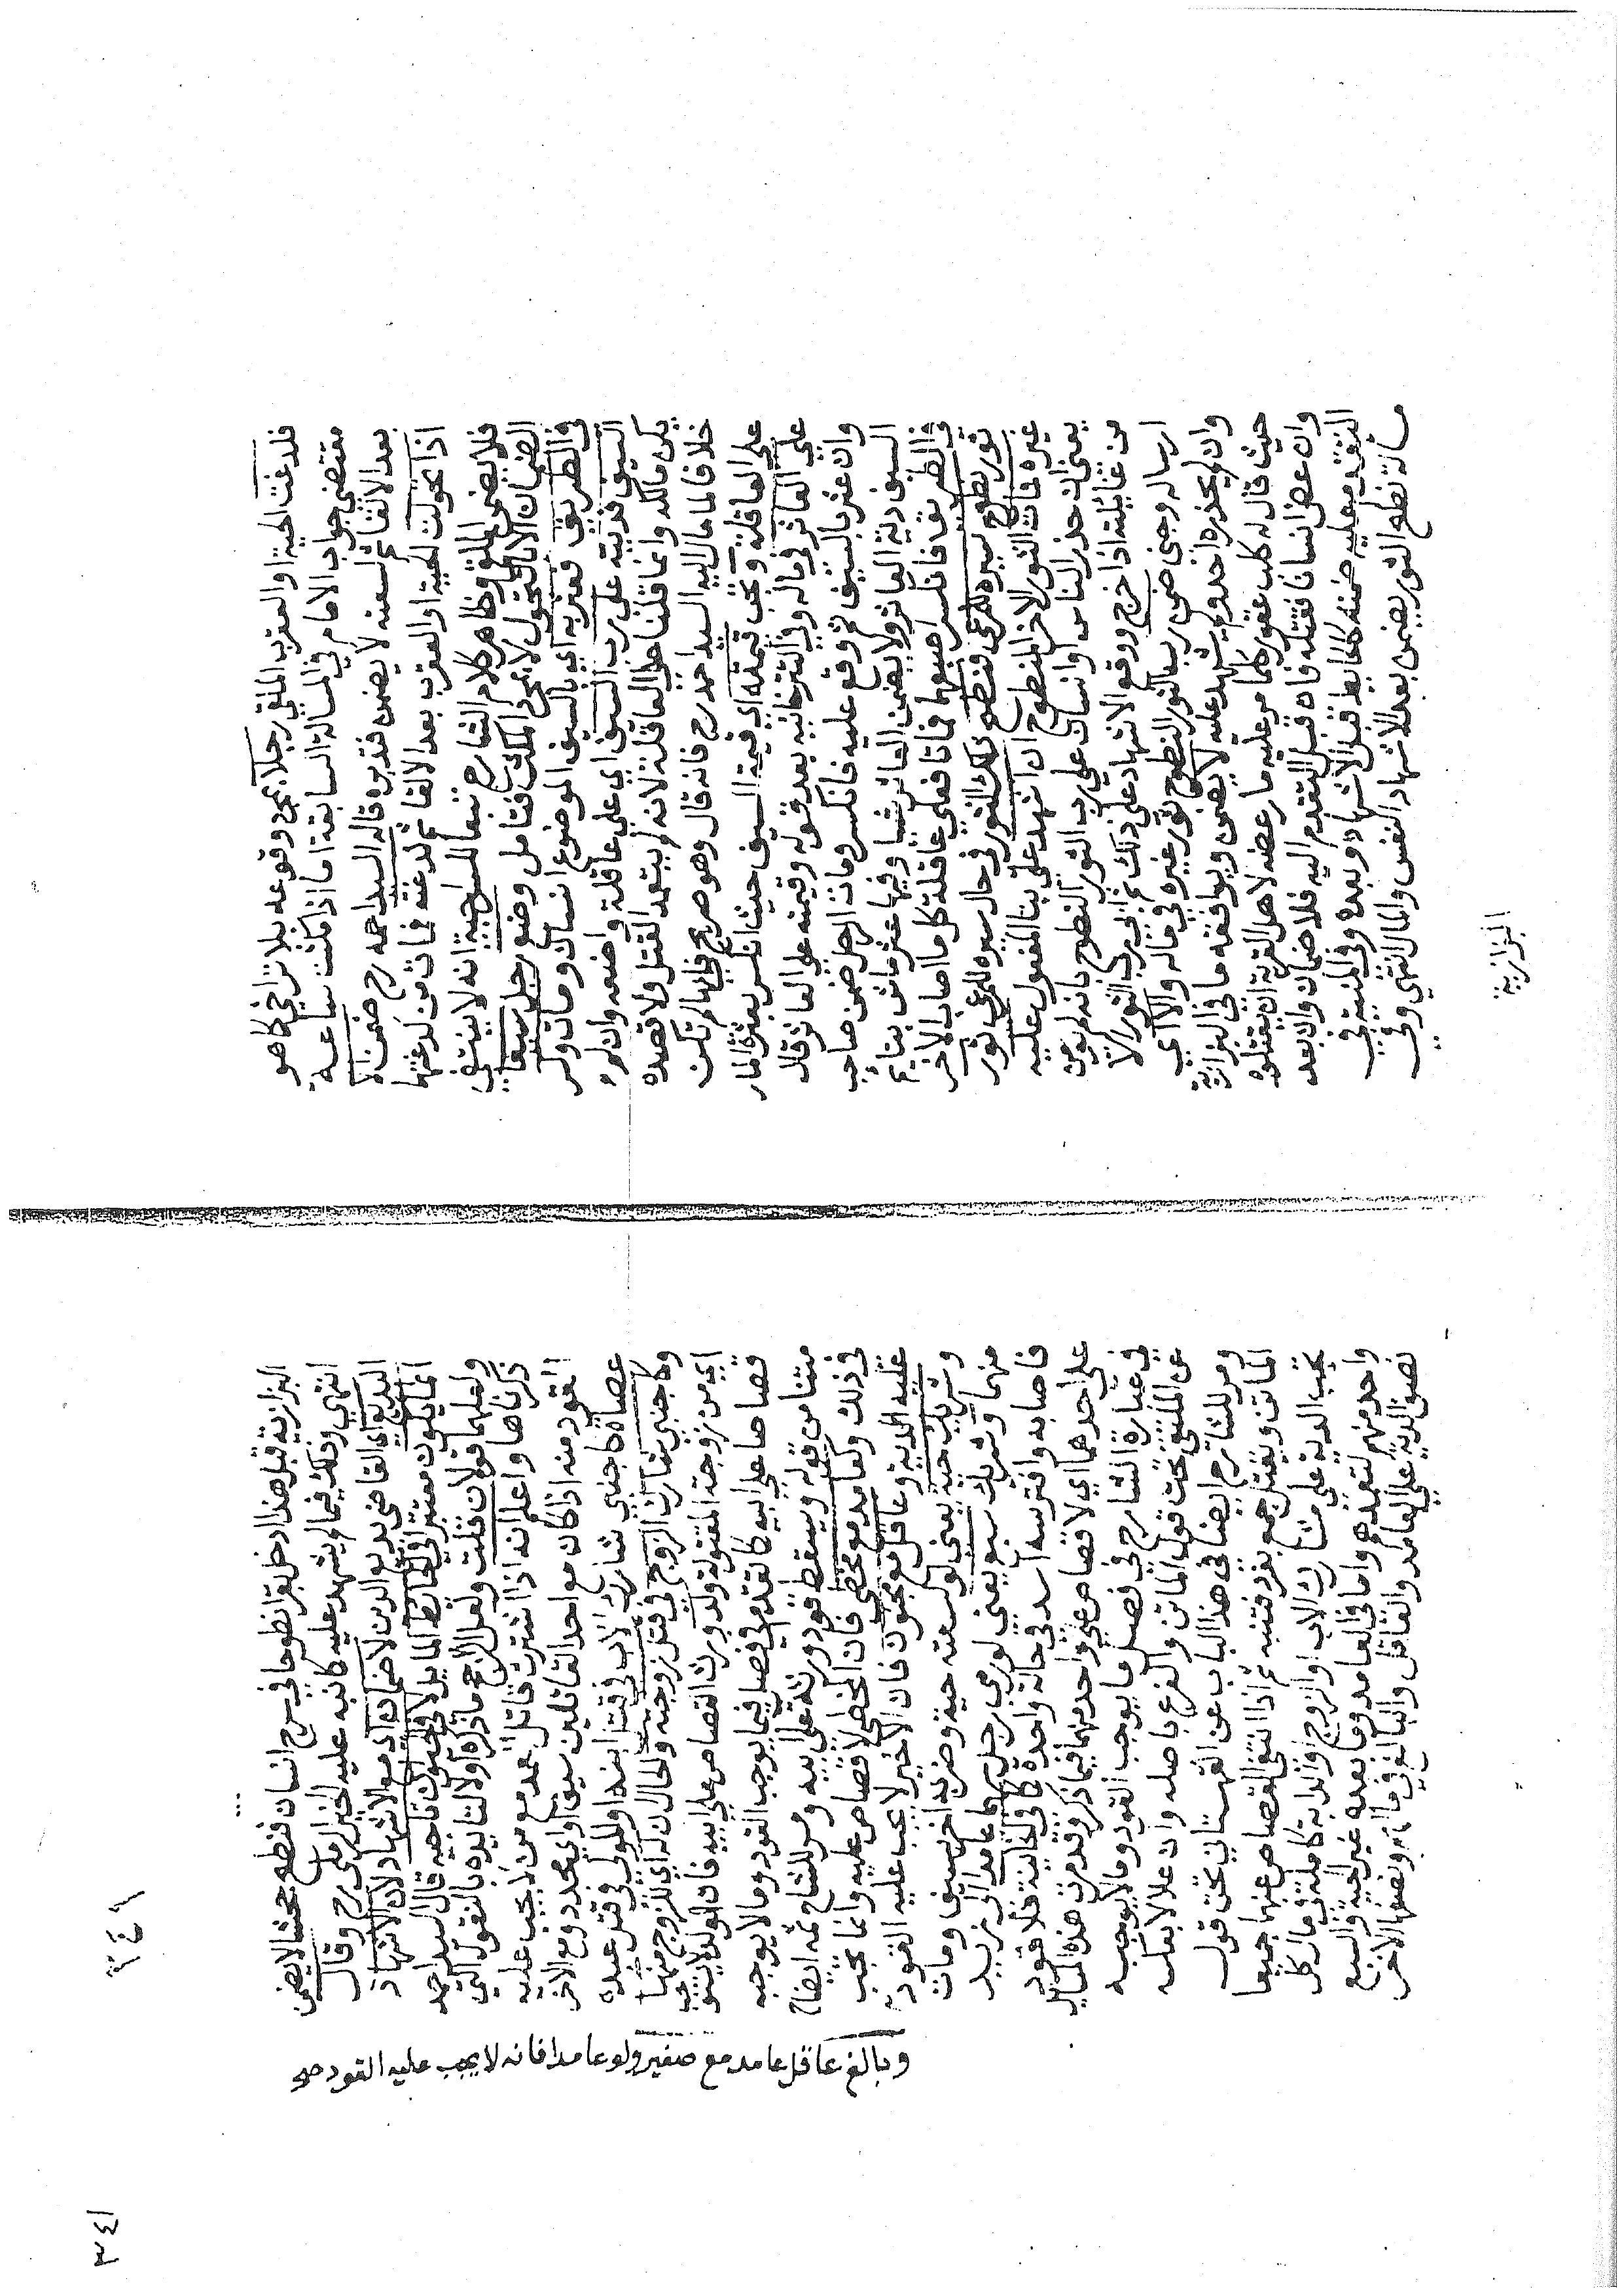 فلدغت الحية او العقرب الملقي رجلا بمجرد وقوعه بلا تراخي كما هو
مقتضي جواب الامام في المسالة السابقة اما اذا مكثت ساعة
بعد الالقاء ثم لسعته لا يضمن فتدبره قاله السيد احمد رح ضمن الا
اذا تحولت الحية او العقرب بعد الالقاء ثم لدغته فمات من لدغتها
فلا يضمن الملقي وظاهر كلام الشارح تبعا للسراجية انه لا ينتفي
الضمان الا بالتحول لا بمجرد المكث فتامل وضع رجل سيفا
في الطريق فعثر به اي بالسيف الموضوع انسان ومات وكسر
السيف فديته على رب السيف اي على عاقلة واضعه وان لم
يكن مالكه وانما قلنا علي العاقلة لانه لم يتعمد القتل ولا قصده
خلافا لما مال اليه السيد احمد رح فانه قال وهو صريح لم تكن
علي العاقلة وتجب قيمته اي قيمة السيف حيث انكسر بعثرة المار
علي العاثر في ماله وفي التترخانيه بعد قوله وقيمته علي العاثر قال
وان عثر بالسيف ثم وقع عليه فانكسر ومات الرجل ضمن صاحب
السيف دية العاثر ولا يضمن العاثر شيا وفيها عثر ماش بنايم
في الطريق فانكسر اصبعهما فماتا فعلي عاقلة كل ما اصاب الاخر
ثور نطوح سيره للمرعي فنطح ذلك الثور في حال سيره للمرعي ثور
غيره فمات الثور الاخر المنطوح ان اشهد علي بنا المفعول عليه
يعني ان حذر الناس او انسان علي رب الثور النطوح بانه لم يومن
من غايلته اذا خرج ووقع الاشهاد علي ذلك ثم ابي رب الثور الا
ارساله وجني ضمن رب الثور النطوح ثور غيره في ماله والا اي
وان لم يحذره احد ولم يشهد عليه لا يضمن ويوافقه ما في البزازية
حيث قال له كلب عقور كلما مر عليه مار عضه لاهل القرية ان يقتلوه
وان عض انسانا فقتله فان قبل التقدم اليه فلا ضمان وان بعد
التقدم عليه ضمنه كالحايط قبل الاشهاد وبعده وفي المنية في
مسالة نطح الثور يضمن بعد الاشهاد النفس والمال انتهي وفي
البزازية
البزازية قبل هذا ادخل بقرا نطوحا في سرح انسان فنطح جحشا لا يضمن
انتهي وذلك فيما لم يشهد عليه كما نبه عليه الخير الرملي رح وقال
البديع اي القاضي بديع الدين لا ضمان اي مع الاشهاد لان الاشهاد
انما يكون معتبرا في الحايط المايل لا في الحيوان تاجيه قال السيد احمد
ولعلهما قولان قلت ولعل الارجح ما ذكره اولا لتاييده بالنقول التي
ذكرناها واعلم انه اذا اشترك قاتل عمد مع من لا يجب عليه
القود منه اذا كان مع احد القاتلين سيف اي محدد ومع الاخر
عصا كاجنبي شارك الاب في قتل ابنه او المولي في قتل عبده
وكاجنبي شارك الزوج في قتل زوجته والحال ان له اي للزوج منها
اي من زوجته المقتولة ولد ورث القصاص علي ابيه فان الولد لا يستوجب
قصاصا علي ابيه كما تقدم في فصل فيما يوجب القود وما لا يوجبه
متنا من قوله ويسقط قود ورثه علي ابيه ومر للشارح ثمه ايضاح
في ذلك وكعامد مع مخطي فان المخطي لا قصاص عليه وانما تجب
عليه الدية وعاقل مع مجنون فان الاخير لا يجب عليه القود
وبالغ عاقل عامد مع صغير ولو عامدا فانه لا يجب عليه القود صح
وشريك حية يعني لو لسعته حية وضربه اخر بسيف ومات
منهما وشريك سبع يعني لو رمي رجل سهما عامدا الي زيد
فاصابه وافترسه اسد في حالة واحدة كما في الخانية فلا قود
علي احدهما اي لا قصاص علي واحد منهما فيما ذكر وقد مرت هذه المسايل
في عبارة الشارح في فصل ما يوجب القود وما لا يوجبه
عن الملتقي تحت قول الماتن والفرع باصله وان علا لا بعكسه
ومر للشارح ايضا في هذا الباب عن القهستاني تحت قول
الماتن ويقتل جمع بفرد فتنبه ثم اذا انتفي القصاص عنهما جميعا
تجب الدية علي مشارك الاب او الزوج والدية كاملة في مال كل
واحد منهم لتعمدهم واما في العامد وما بعده غير الحية والسبع
نصف الدية علي العامد والعاقل والبالغ في ماله ونصفها الاخر
٣٤١
٣٤١